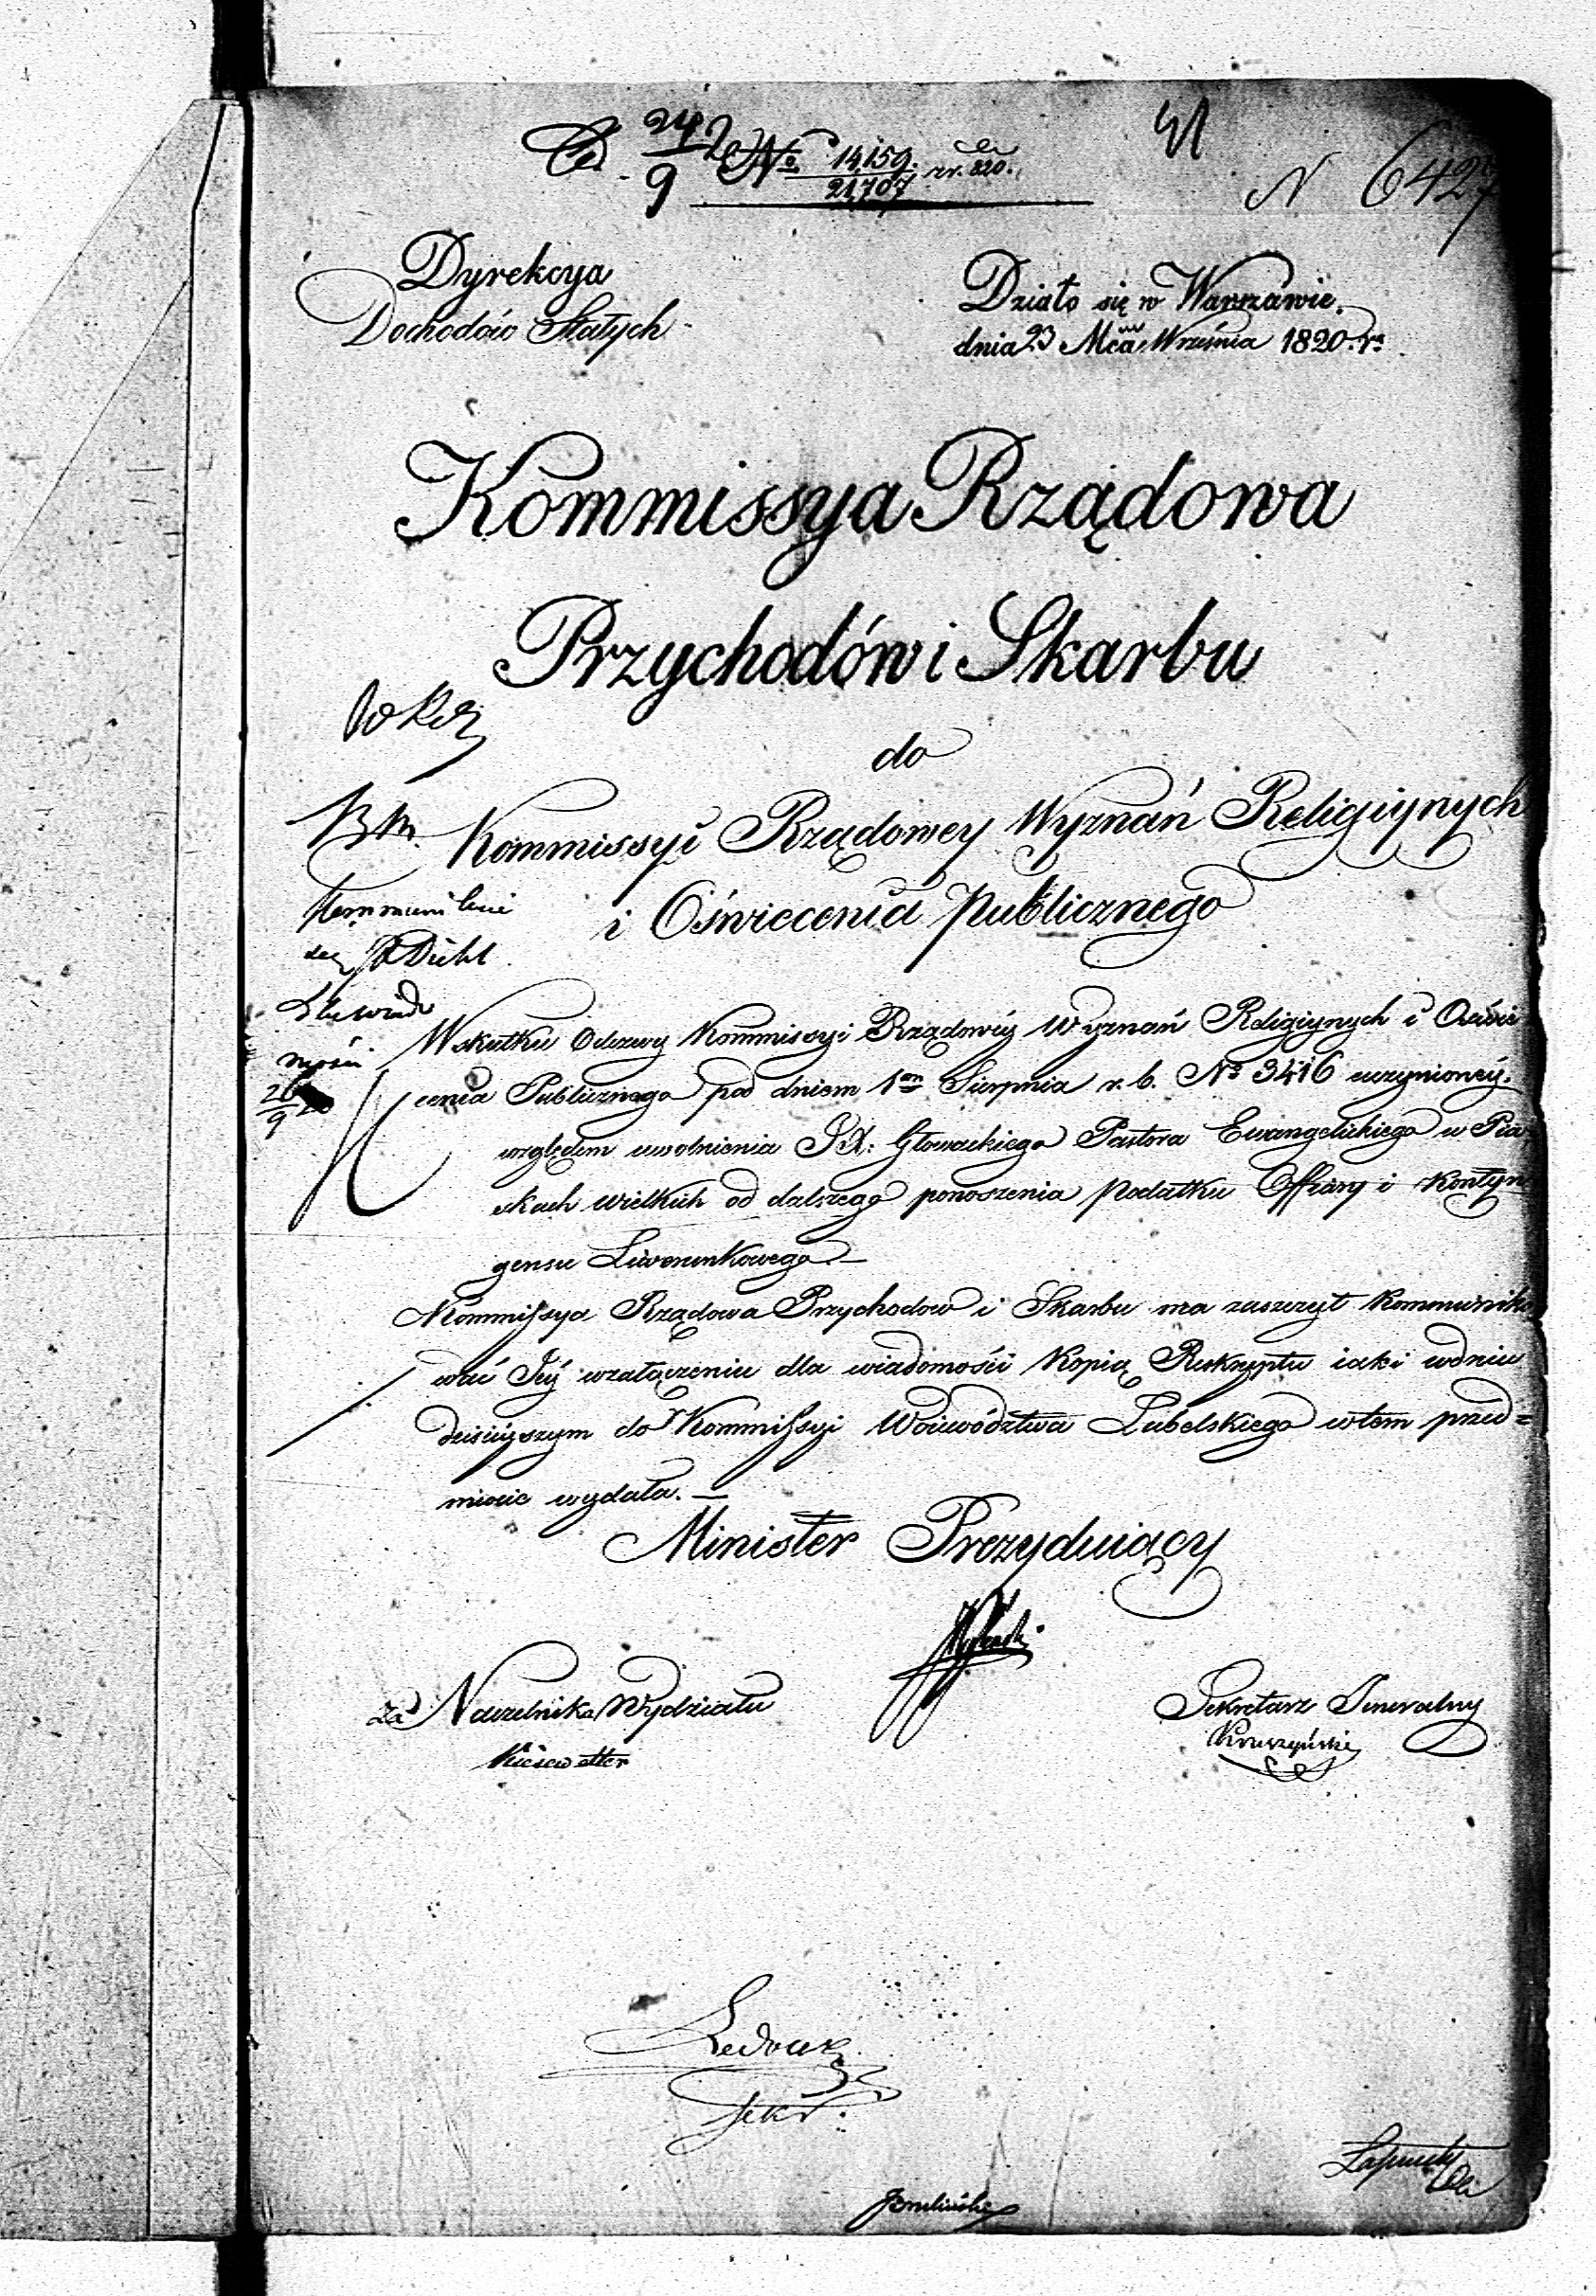 24/9 20 No 14159./21,707 zr. 820.
41
N 6427
Dyrekcya
Dochodów Stałych
Działo się w Warszawie.
dnia 23 Mca Września 1820. r.
Kommissya Rządowa
Przychodów i Skarbu
do
Kommissyi Rządowey Wyznań Religiynych
i Oświecenia Publicznego
JX Diehl
26/9 20
Wskutku Odezwy Kommissyi Rządowéy Wyznań Religiynych i Oświe
cenia Publicznego pod dniem 1en Sierpnia r. b. No 3416 uczynionéy,
względem uwolnienia JX. Głowackiego Pastora Ewangelickiego w Pia
skach wielkich od dalszego ponoszenia Podatku Offiary i Kontyn
gensu Liwerunkowego —
Kommissya Rządowa Przychodow i Skarbu ma zaszczyt Kommuniko
wać Jéy wzałączeniu dla wiadomości Kopią Reskryptu iaki wdniu
dzisieyszym do Kommissyi Woiewództwa Lubelskiego wtem przed=
miocie wydała. —
Minister Prezyduiący
za Naczelnika Wydziału
Kiesewetter
Sekretarz Jeneralny
Kruszyński
Sekr.